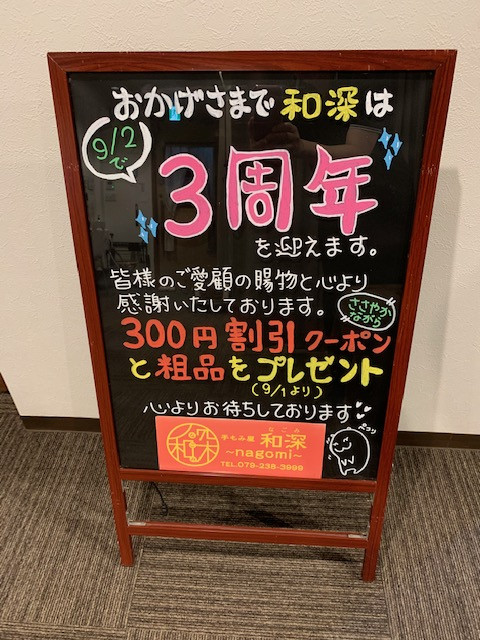 おかげさまで 和深は
9/2で
3周年
を迎えます。
皆様のご愛顧の賜物と心より
感謝いたしております。
ささやか
ながら
300円割引クーポン
と粗品をプレゼント
(9/1より)
心よりお待ちしております
ペコリ
手もみ屋 和深
なごみ
~nagomi~
TEL.079-238-3999